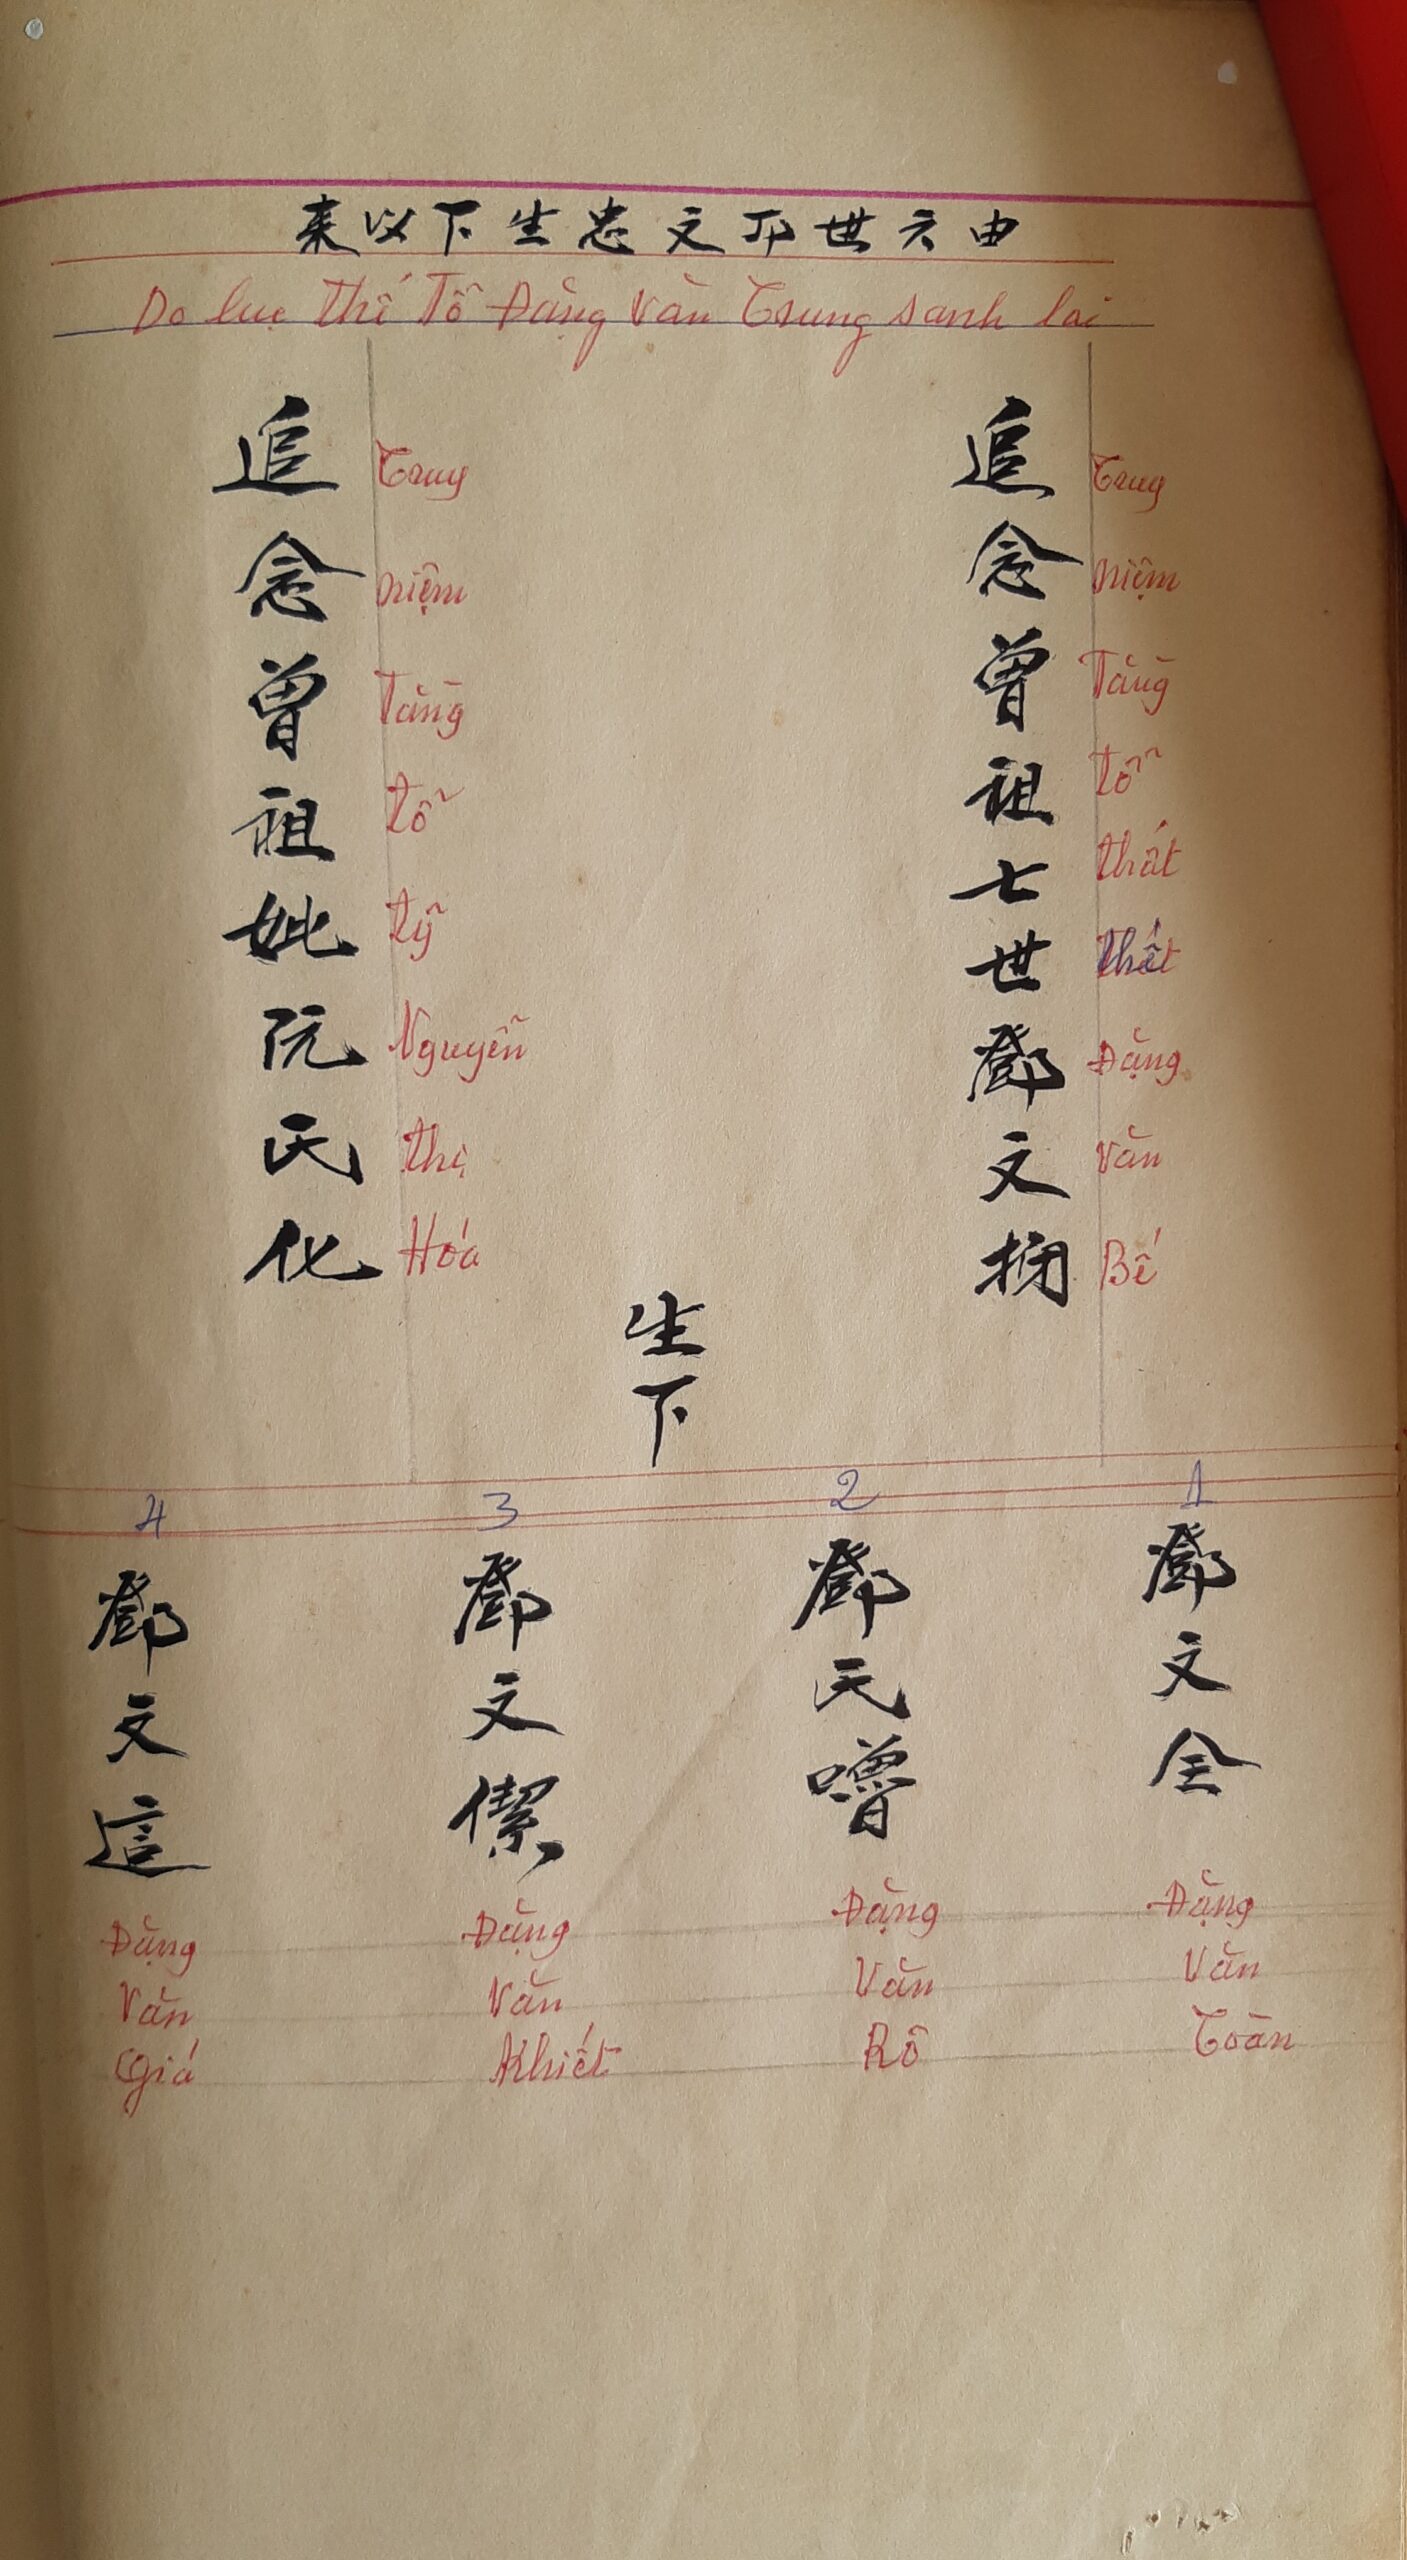 由六世卩文忠生下以来
Do lục thế Tổ Đặng Văn Trung sanh lai
追念曾祖七世鄧文捫
Truy niệm Tằng tổ thất thế Đặng Văn Bế
追念曾祖妣阮氏化
Truy niệm Tằng tổ tỷ Nguyễn thị Hóa
生下
1
鄧文全
Đặng Văn Toàn
2
鄧氏噜
Đặng Văn Rô
3
鄧文㓗
Đặng Văn Khiết
4
鄧文這
Đặng Văn Giá